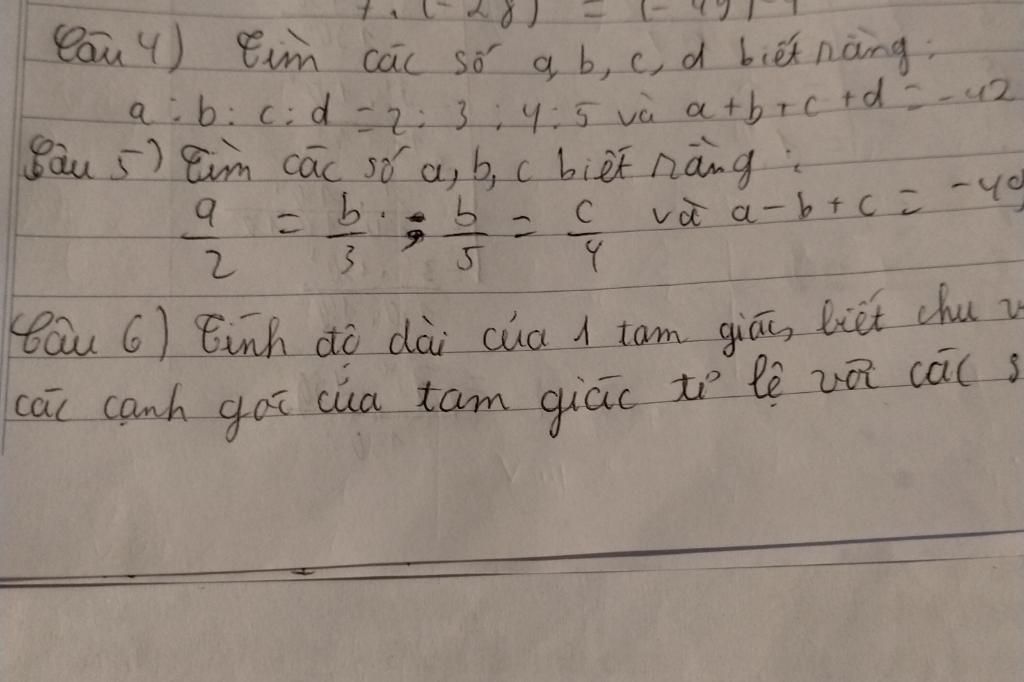 7. (-28) = (-49)
Câu 4) Tìm các số a, b, c, d biết rằng:
a : b : c : d = 2 : 3 : 4 : 5 và a + b + c + d = -42
Câu 5) Tìm các số a, b, c biết rằng:
a/2 = b/3 ; b/5 = c/4 và a - b + c = -49
Câu 6) Tính độ dài của 1 tam giác, biết chu v
các cạnh góc của tam giác tỉ lệ với các s